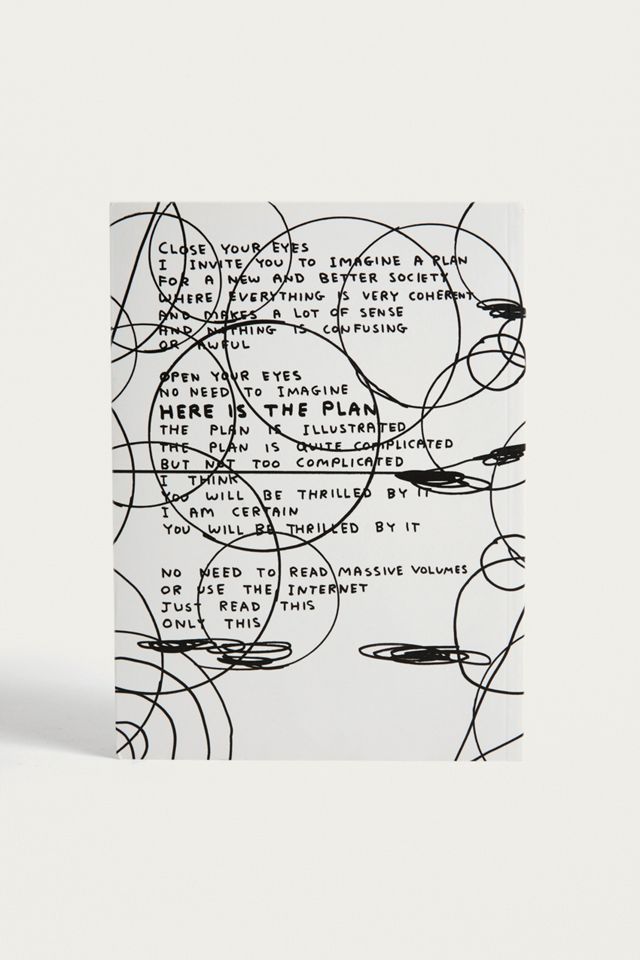 CLOSE YOUR EYES
I INVITE YOU TO IMAGINE A PLAN
FOR A NEW AND BETTER SOCIETY
WHERE EVERYTHING IS VERY COHERENT
AND MAKES A LOT OF SENSE
AND NOTHING IS CONFUSING
OR AWFUL
OPEN YOUR EYES
NO NEED TO IMAGINE
HERE IS THE PLAN
THE PLAN IS ILLUSTRATED
THE PLAN IS QUITE COMPLICATED
BUT NOT TOO COMPLICATED
I THINK
YOU WILL BE THRILLED BY IT
I AM CERTAIN
YOU WILL BE THRILLED BY IT
NO NEED TO READ MASSIVE VOLUMES
OR USE THE INTERNET
JUST READ THIS
ONLY THIS